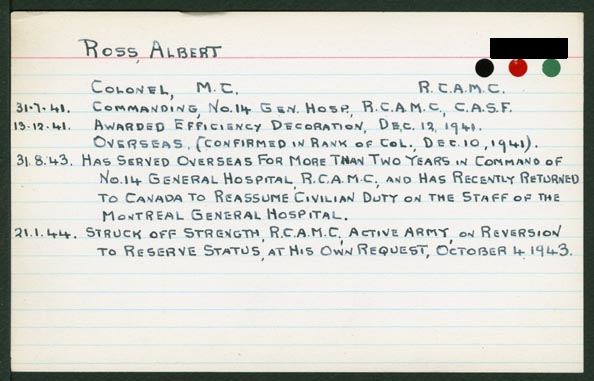 ROSS, ALBERT
COLONEL, M.C. R.C.A.M.C.
31-7-41. COMMANDING, NO.14 GEN. HOSP., R.C.A.M.C., C.A.S.F.
13-12-41. AWARDED EFFICIENCY DECORATION, DEC. 12, 1941.
OVERSEAS. (CONFIRMED IN RANK OF COL., DEC. 10, 1941).
31.8.43. HAS SERVED OVERSEAS FOR MORE THAN TWO YEARS IN COMMAND OF
NO.14 GENERAL HOSPITAL, R.C.A.M.C., AND HAS RECENTLY RETURNED
TO CANADA TO REASSUME CIVILIAN DUTY ON THE STAFF OF THE
MONTREAL GENERAL HOSPITAL.
21.1.44. STRUCK OFF STRENGTH, R.C.A.M.C., ACTIVE ARMY, ON REVERSION
TO RESERVE STATUS, AT HIS OWN REQUEST, OCTOBER 4, 1943.